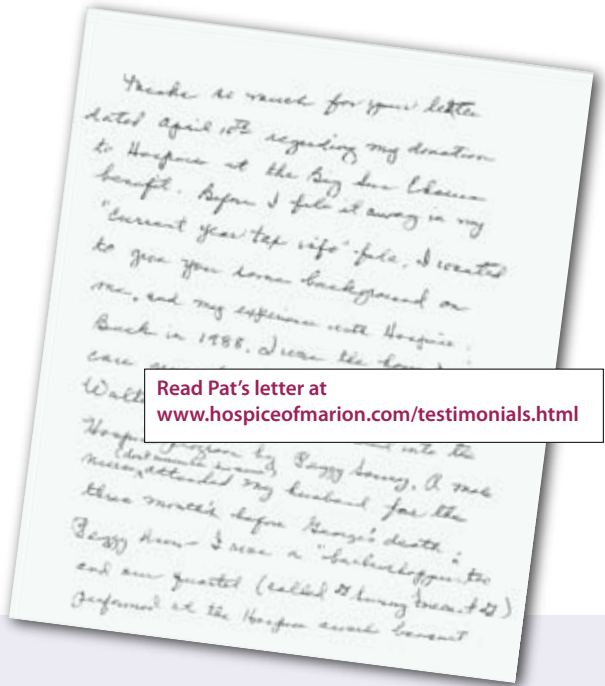 Thanks so much for your letter
dated April 10th regarding my donation
to Hospice at the Big Sun Chorus
benefit. Before I file it away in my
"current year tax info" file, I wanted
to give you some background on
me, and my experience with Hospice.
Back in 1988, I was the
care
Read Pat's letter at
www.hospiceofmarion.com/testimonials.html
into the
Hospice program by Peggy A male
nurse, attended my husband for the
three months before George's death.
Peggy I was a "barbershopper" too
and our quartet (called
performed at the Hospice award banquet